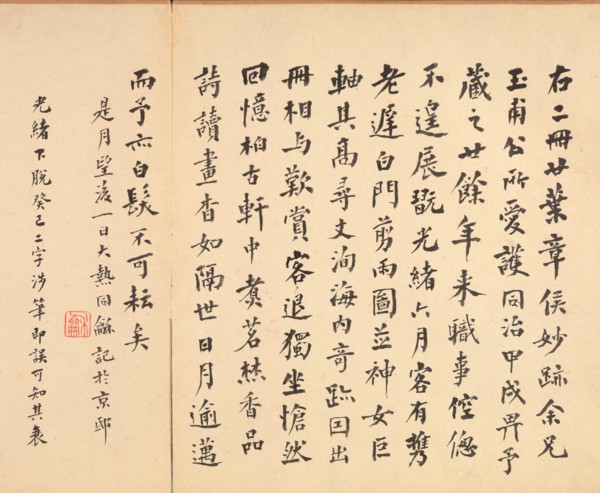 右二冊廿葉章侯妙跡余兄
玉甫公所愛護同治甲戌畀予
藏之廿餘年来職事倥偬
不遑展翫光緒六月客有攜
老遲白門剪雨圖並神女巨
軸其高尋丈洵海内奇跡因出
冊相與歎賞客退獨坐愴然
回憶柏古軒中煑茗焚香品
詩讀畫杳如隔世日月逾邁
而予亦白髮不可耘矣
是月望後一日大熱同龢記於京邸
光緒下脫癸巳二字涉筆即誤可知其衰